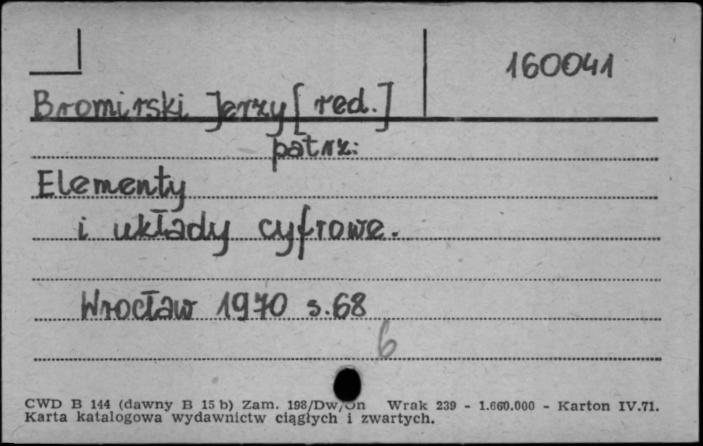 160041
Bromirski Jerzy [red.]
patrz:
Elementy
i układy cyfrowe.
Wrocław 1970 s.68
6
CWD B 144 (dawny B 15 b) Zam. 198/Dw/Un Wrak 239 - 1.660.000 - Karton IV.71.
Karta katalogowa wydawnictw ciągłych i zwartych.